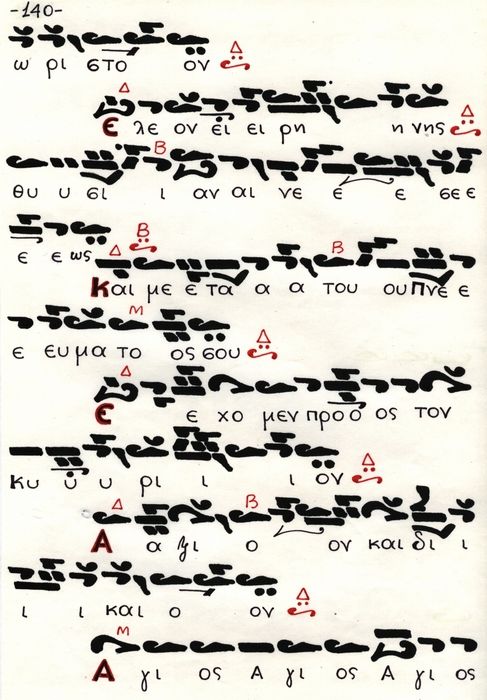 -140-
ω ρι στο ον Δ
Δ
Ε λε ον ει ει ρη η νης Δ
Β
θυ υ σι ι αν αι νε ε ε σε ε
ε ε ως Β
Δ Β
Και με ε τα α α του ου Πνε ε
Μ
ε ευ μα το ος σου Δ
Δ
Ε ε χο μεν προ ο ος τον
κυ υ υ ρι ι ι ον Δ
Δ Β
Α α ξι ο ον και δι ι
ι ι και ο ον Δ
Μ
Α γι ος Α γι ος Α γι ος